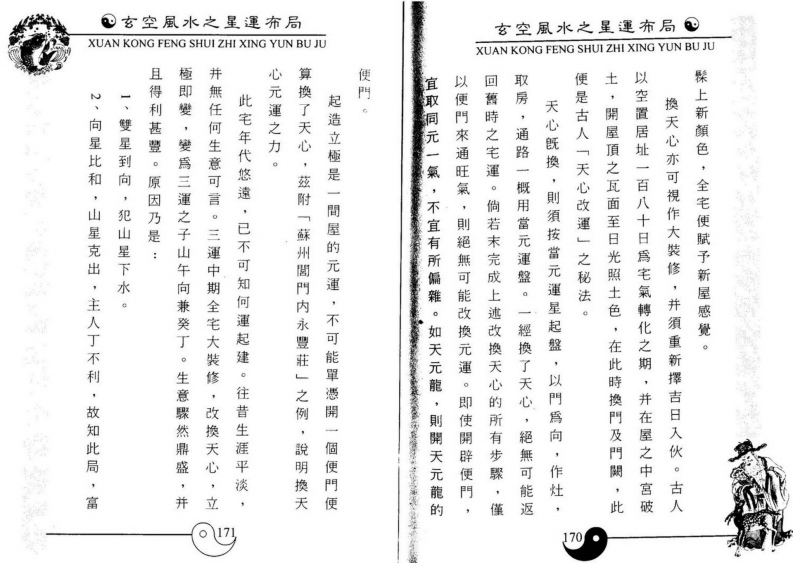 玄空風水之星運布局
XUAN KONG FENG SHUI ZHI XING YUN BU JU
髹上新顏色，全宅便賦予新屋感覺。
換天心亦可視作大裝修，并須重新擇吉日入伙。古人
以空置居址一百八十日爲宅氣轉化之期，并在屋之中宮破
土，開屋頂之瓦面至日光照土色，在此時換門及門闕，此
便是古人「天心改運」之秘法。
天心既換，則須按當元運星起盤，以門爲向，作灶，
取房，通路一概用當元運盤。一經換了天心，絕無可能返
回舊時之宅運。倘若末完成上述改換天心的所有步驟，僅
以便門來通旺氣，則絕無可能改換元運。即使開辟便門，
宜取同元一氣，不宜有所偏雜。如天元龍，則開天元龍的
170
玄空風水之星運布局
XUAN KONG FENG SHUI ZHI XING YUN BU JU
便門。
起造立極是一間屋的元運，不可能單憑開一個便門便
算換了天心，茲附「蘇州閶門内永豐莊」之例，說明換天
心元運之力。
此宅年代悠遠，已不可知何運起建。往昔生涯平淡，
并無任何生意可言。三運中期全宅大裝修，改換天心，立
極即變，變爲三運之子山午向兼癸丁。生意驟然鼎盛，并
且得利甚豐。原因乃是：
1、雙星到向，犯山星下水。
2、向星比和，山星克出，主人丁不利，故知此局，富
171